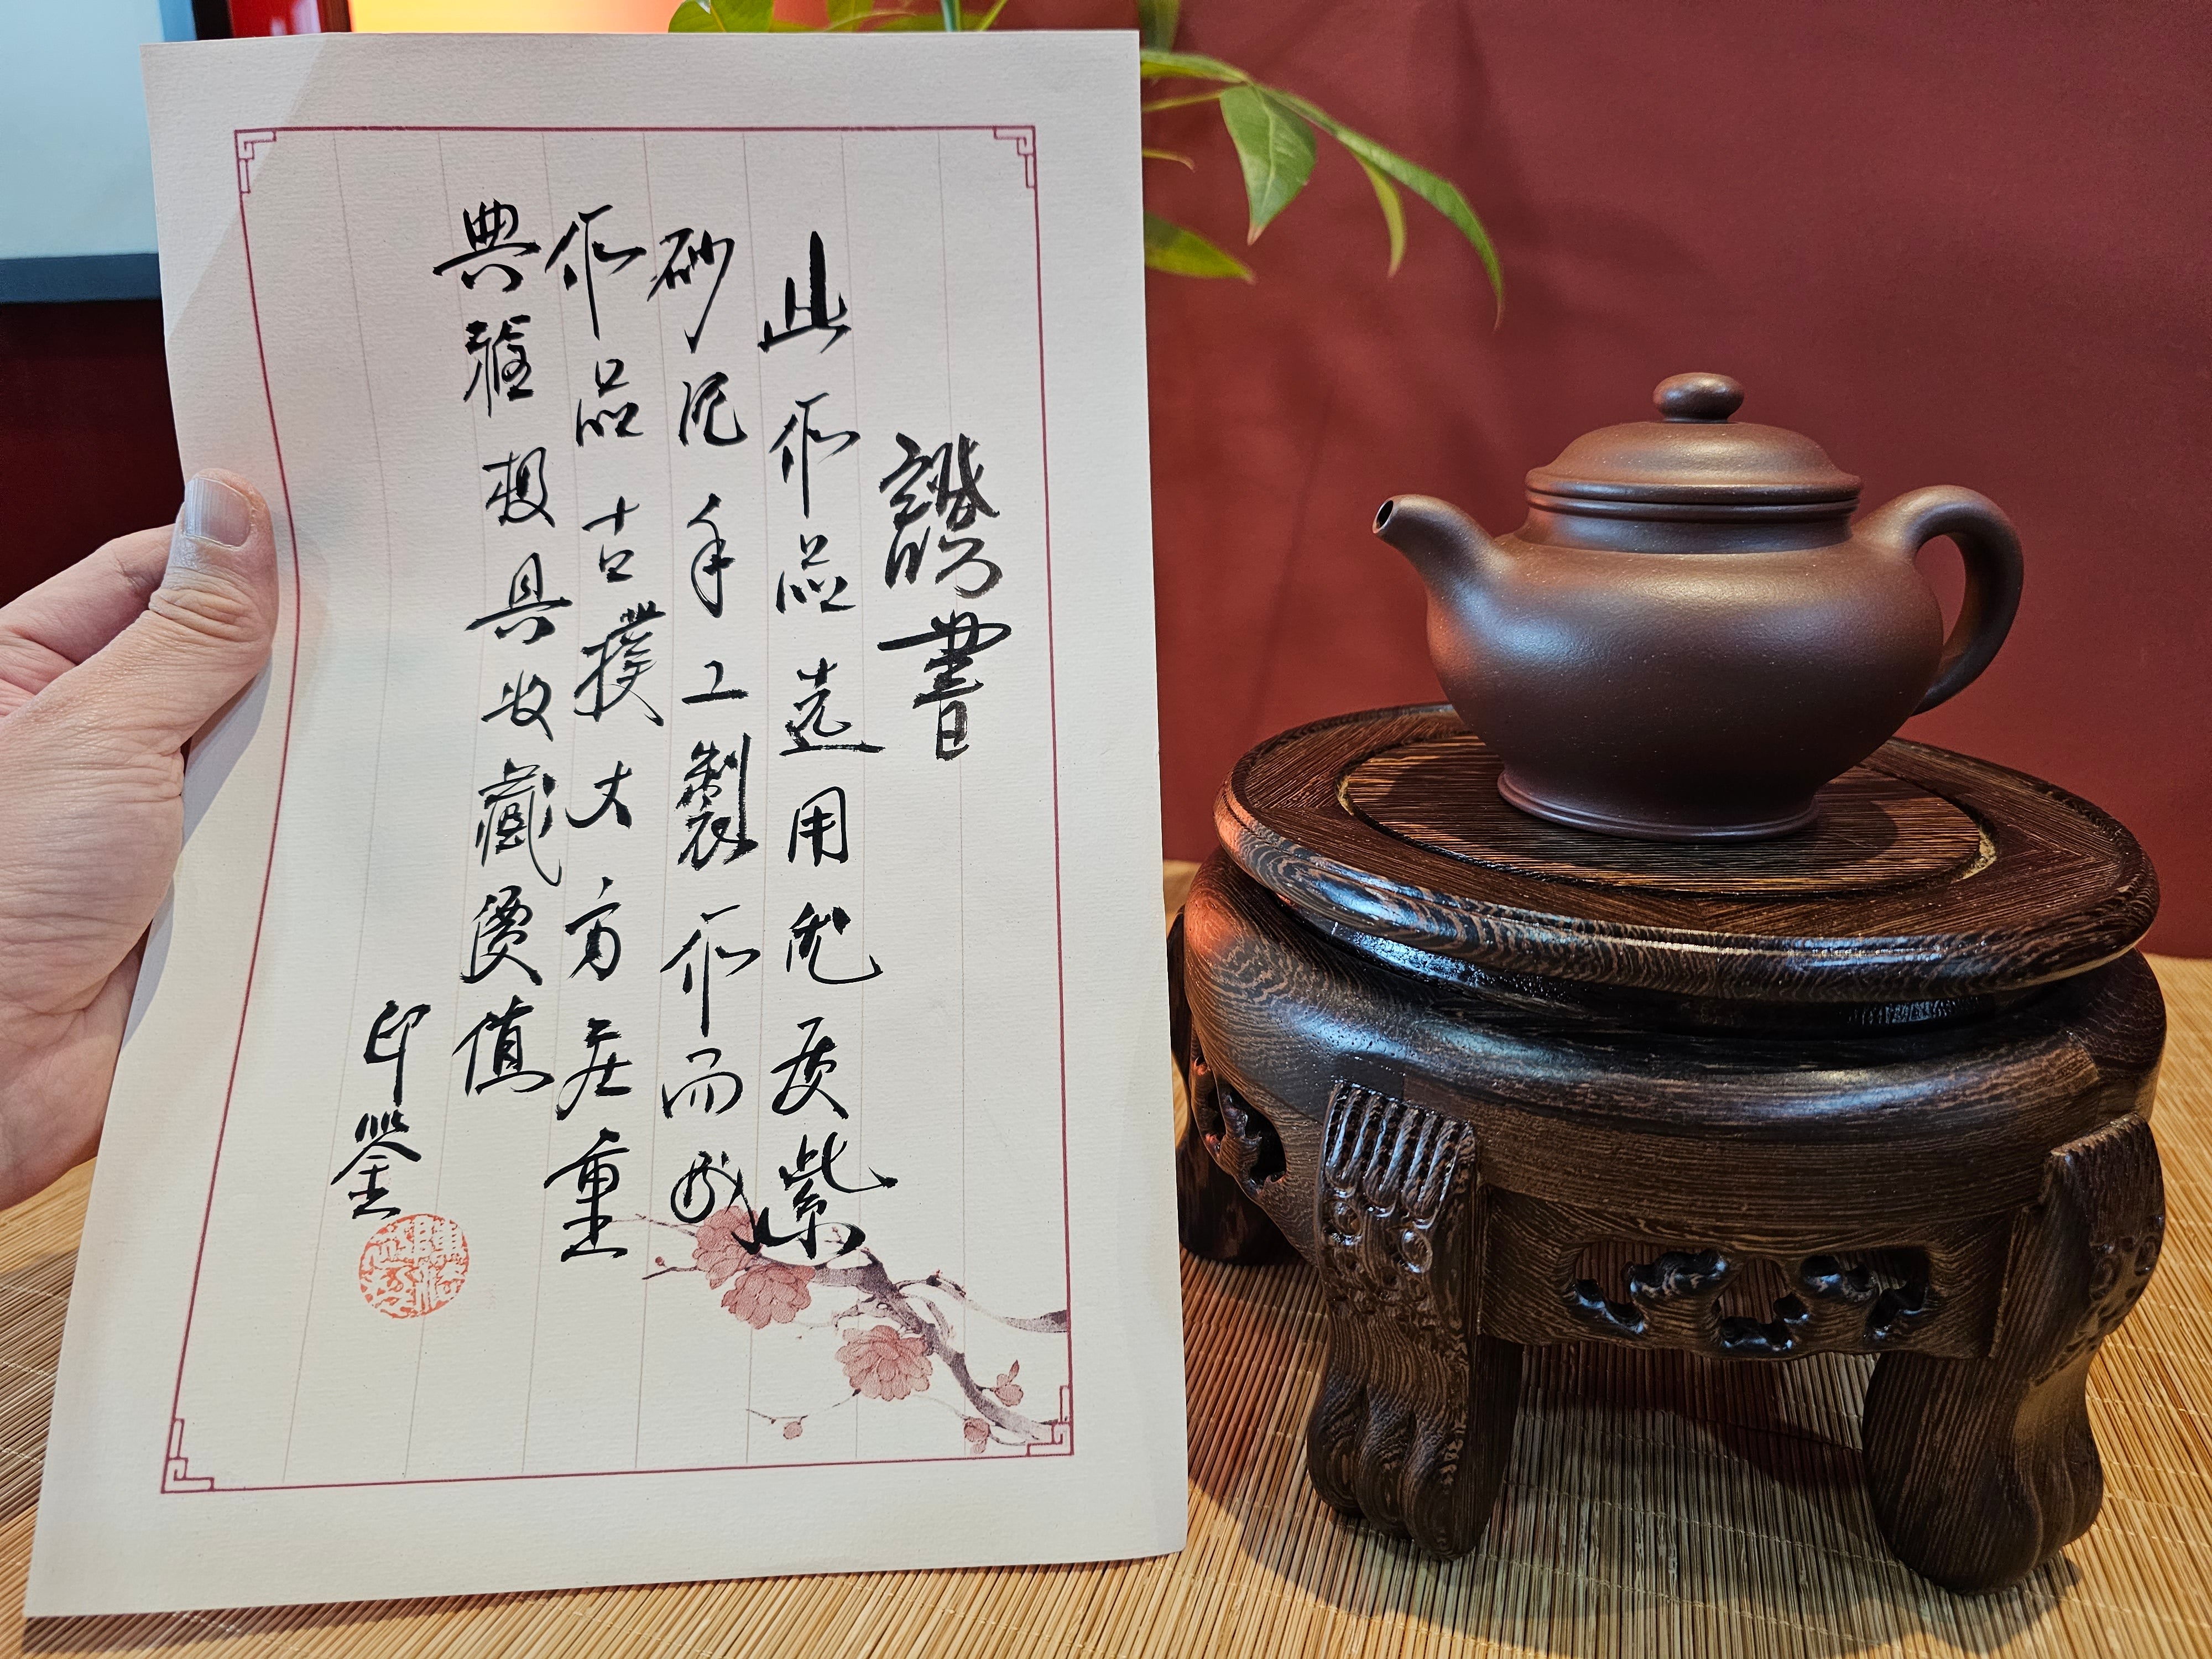 證書
此作品选用优质紫
砂泥手工製作而成
作品古樸大方庄重
典雅极具收藏價值
印鉴